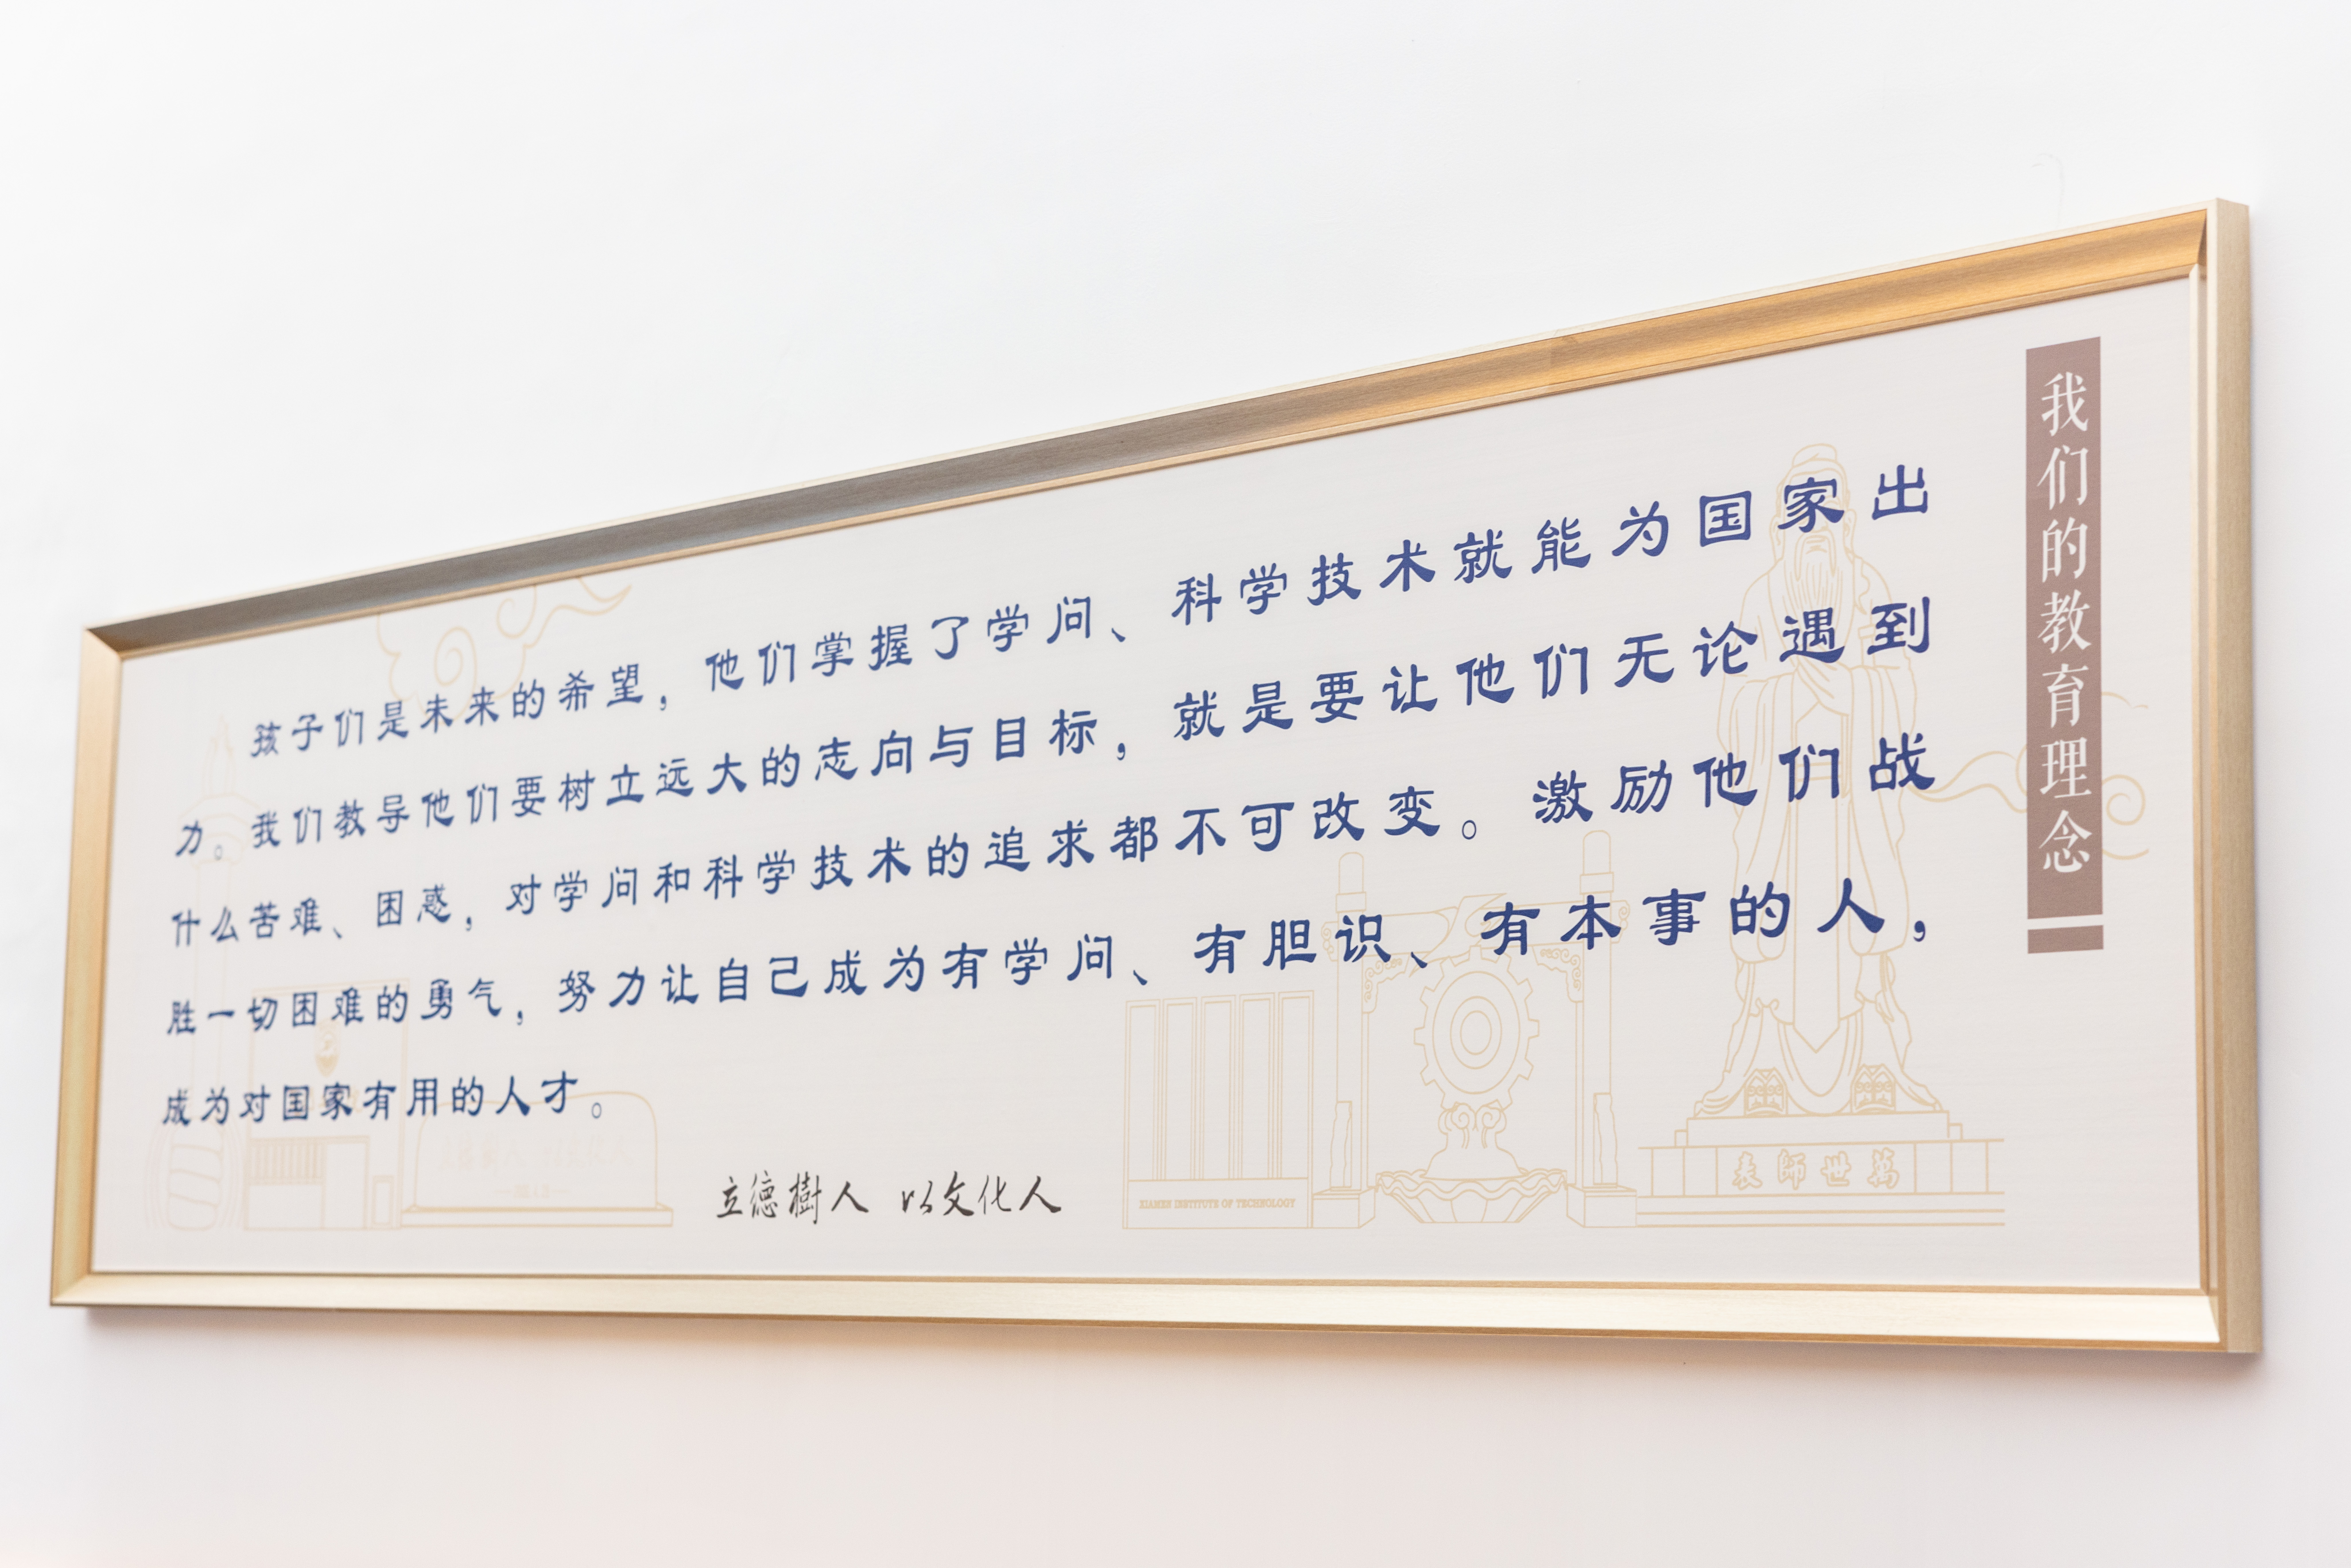 我们的教育理念
孩子们是未来的希望，他们掌握了学问、科学技术就能为国家出
力。我们教导他们要树立远大的志向与目标，就是要让他们无论遇到
什么苦难、困惑，对学问和科学技术的追求都不可改变。激励他们战
胜一切困难的勇气，努力让自己成为有学问、有胆识、有本事的人，
成为对国家有用的人才。
立德樹人 以文化人
XIAMEN INSTITUTE OF TECHNOLOGY
表師世萬
立德樹人 以文化人